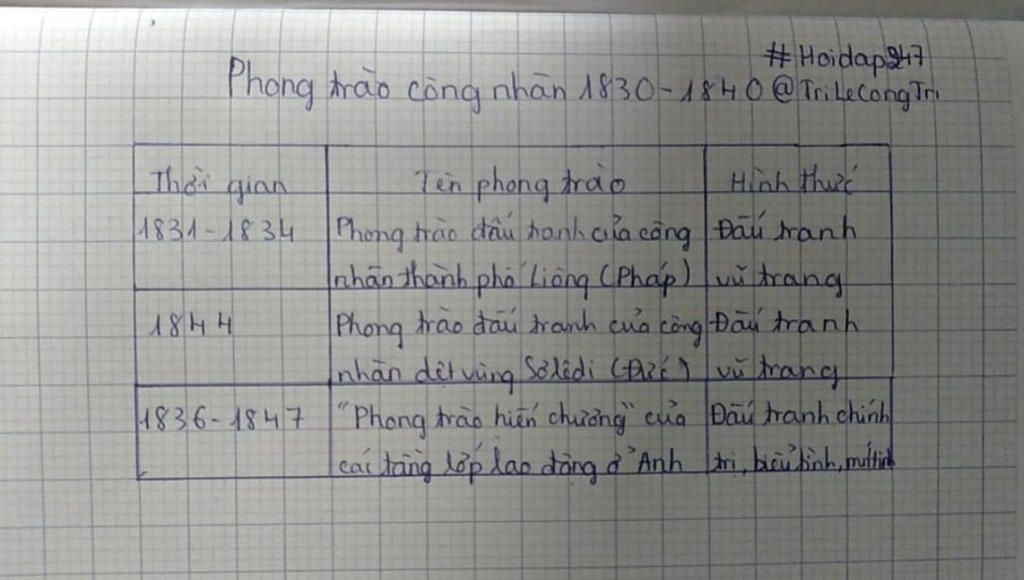 #Hoidap247
Phong trào công nhân 1830-1840 @TriLeCongTri
Thời gian
Tên phong trào
Hình thức
1831-1834
Phong trào đấu tranh của công
nhân thành phố Liông (Pháp)
Đấu tranh
vũ trang
1844
Phong trào đấu tranh của công
nhân dệt vùng Sơlêdi (Đức)
Đấu tranh
vũ trang
1836-1847
"Phong trào hiến chương" của
các tầng lớp lao động ở Anh
Đấu tranh chính
trị, biểu tình, mít tinh